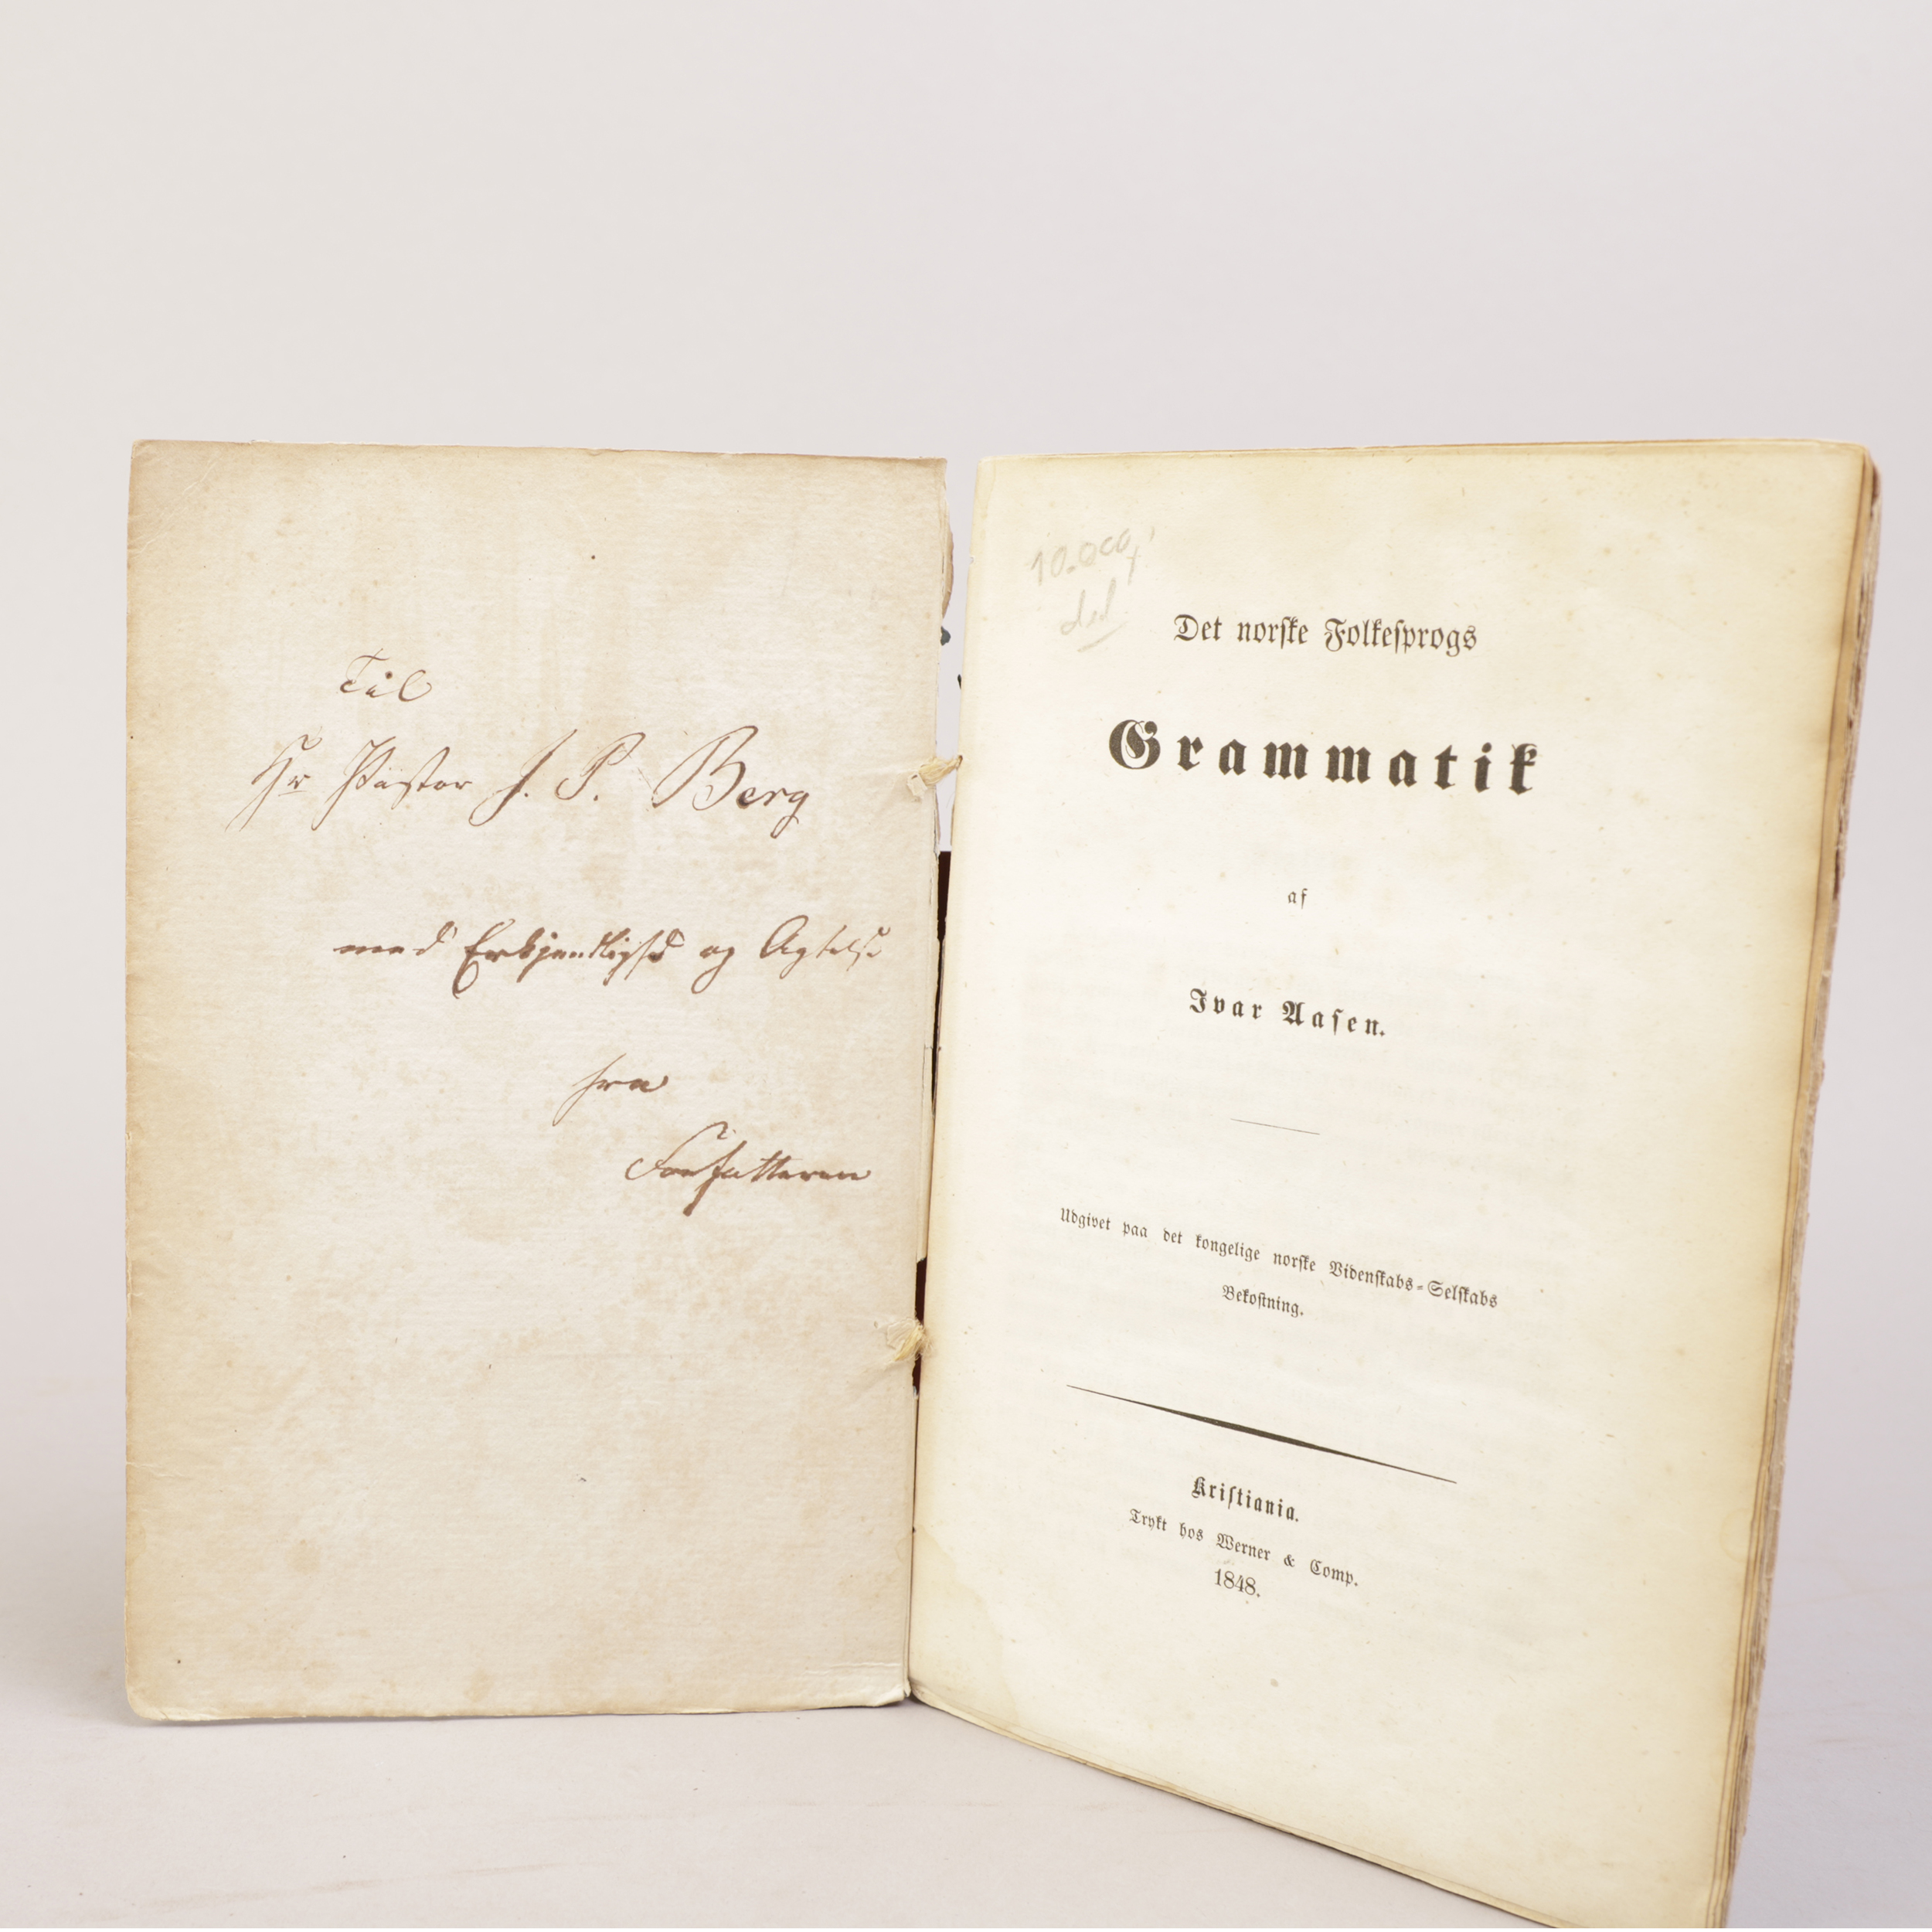 Til
Hr Pastor J. P. Berg
med Erkjendtlighed og Agtelse
fra
Forfatteren
10.000,
Det norske Folkesprogs
Grammatik
af
Ivar Aasen.
Udgivet paa det kongelige norske Videnskabs-Selskabs
Bekostning.
Kristiania.
Trykt hos Werner & Comp.
1848.